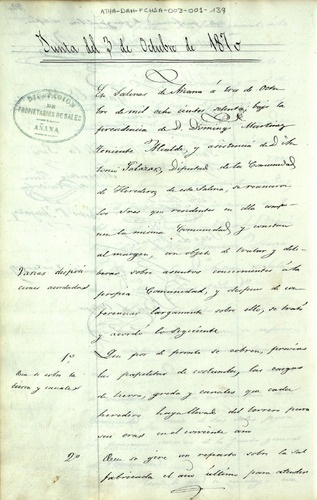 ATHA-DAH-FCHSA-003-003-139
Junta del 3 de Octubre de 1870
DIPUTACION
DE
PROPIETARIOS DE SALES
AÑANA
En Salinas de Añana á tres de Octu
bre de mil ocho cientos setenta, bajo la
presidencia de D. Domingo Martinez
Teniente Alcalde, y asistencia de D.
Salazar, Diputado de la Comunidad
de Herederos de esta Salina, se reunieron
los Sres que residentes en ella
la misma Comunidad y constan
al margen, con objeto de tratar y deli-
berar sobre asuntos concernientes á la
propia Comunidad, y despues de con-
ferenciar largamente sobre ello, se trató
y acordó lo siguiente
Varias disposi
ciones acordadas
1º
Que se cobre la
tierra y canales
Que por de pronto se cobren, previas
las papeletas de costumbre, las cargas
de tierra, greda y canales que cada
heredero haya llevado del terrero para
sus eras en el corriente año
2º
Que se gire un reparto sobre la sal
fabricada el año último para atender